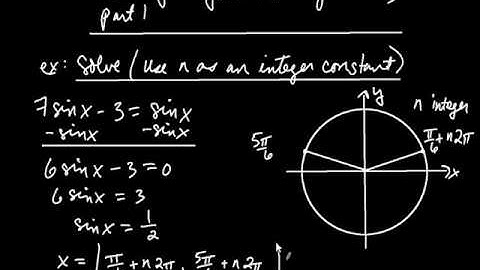 part 1
ex: Solve (use n as an integer constant)
7sinx - 3 = sinx
-sinx -sinx
6sinx - 3 = 0
6sinx = 3
sinx = 1/2
x = π/6 + n2π, 5π/6 + n2π
y
n integer
5π/6
π/6 + n2π
x